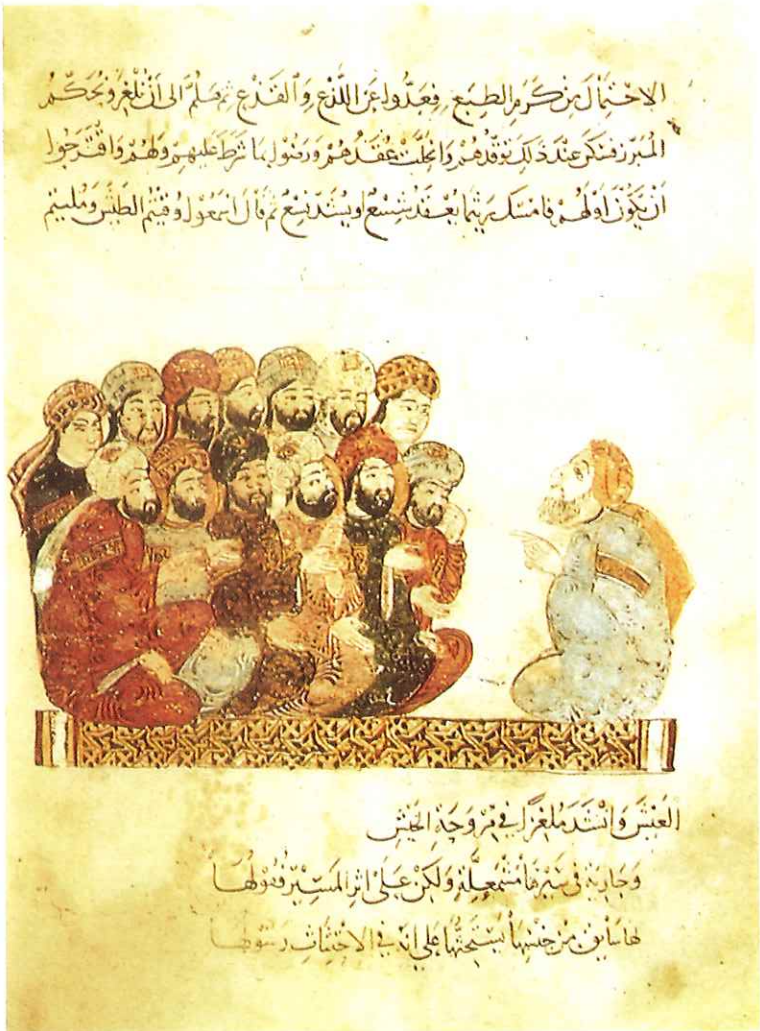 الاحتمال من كرم الطبع فعدوا عن اللذع والقذع ثم هلم الى ان نلغز ونحكم
المبرز فسكن عند ذلك توقدهم وانحلت عقدهم ورضوا بما شرط عليهم ولهم واقترحوا
ان يكون اولهم فامسك ريثما يعقد شسع او يشد نسع ثم قال اسمعوا وقيتم الطيش ومليتم
العيش وانشد ملغزا في مروحة الخيش
وجارية في سيرها مشمعلة ولكن على اثر المسير قفولها
لها سايق من جنسها يستحثها على انه في الاحتثاث رسيلها